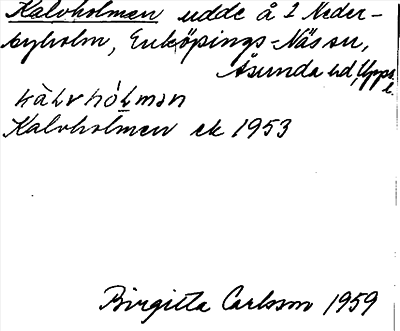 Kalvholmen udde å 2 Neder-
byholm, Enköpings-Näs sn,
Åsunda hd, Upps. l.
kàlvhólmən
Kalvholmen ek 1953
Birgitta Carlsson 1959